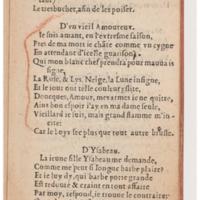 Le trebuchet, afin de les poiser.
D'vn vieil Amoureux.
Ie suis amant, en l'extresme saison,
Pres de ma mort ie châte comme vn cygne
En attendant d'icelle guarison
Qui mon blanc chef prendra pour mauuais
signe,
La Rose, & Lys, Neige, la Lune insigne,
Et le iour ont telle couleur
Doncques, Amour, me ne quitte,
Ains bon espoir i'ay en ma dame seule,
Vieillard ie suis, mais grand flamme m'in-
cite:
Car le boys sec plus que tout autre brusle.
D'Ysabeau.
La ieune fille Ysabeau me demande,
Comme me peut si longue barbe plaire?
Et ie luy dy, qui barbe porte grande
Est redouté & craint en tout affaire
Par moy, respond, ie trouue le contraire: